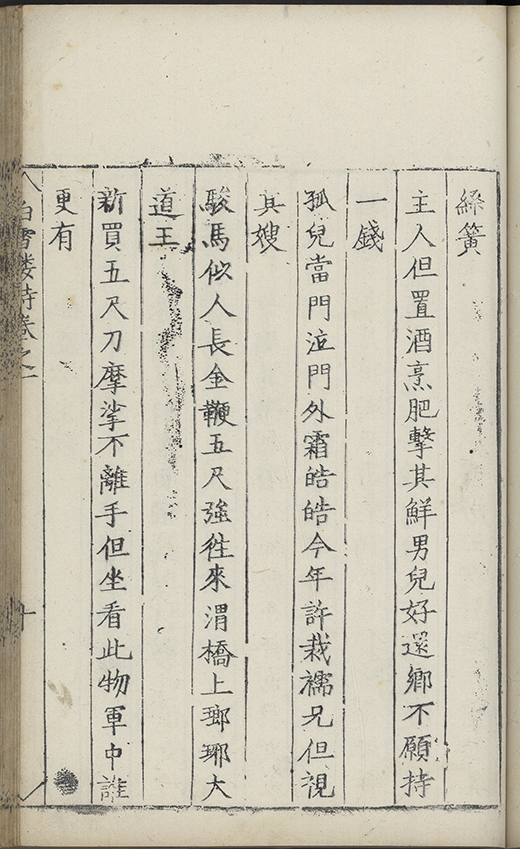 絲簧
主人但置酒烹肥擊其鮮男兒好還鄉不願持
一錢
孤兒當門泣門外霜皓皓今年許栽襦兄但視
其嫂
駿馬似人長金鞭五尺強徃來渭橋上瑯琊大
道王
新買五尺刀摩挲不離手但坐看此物軍中誰
更有
白雪樓詩卷之一
十